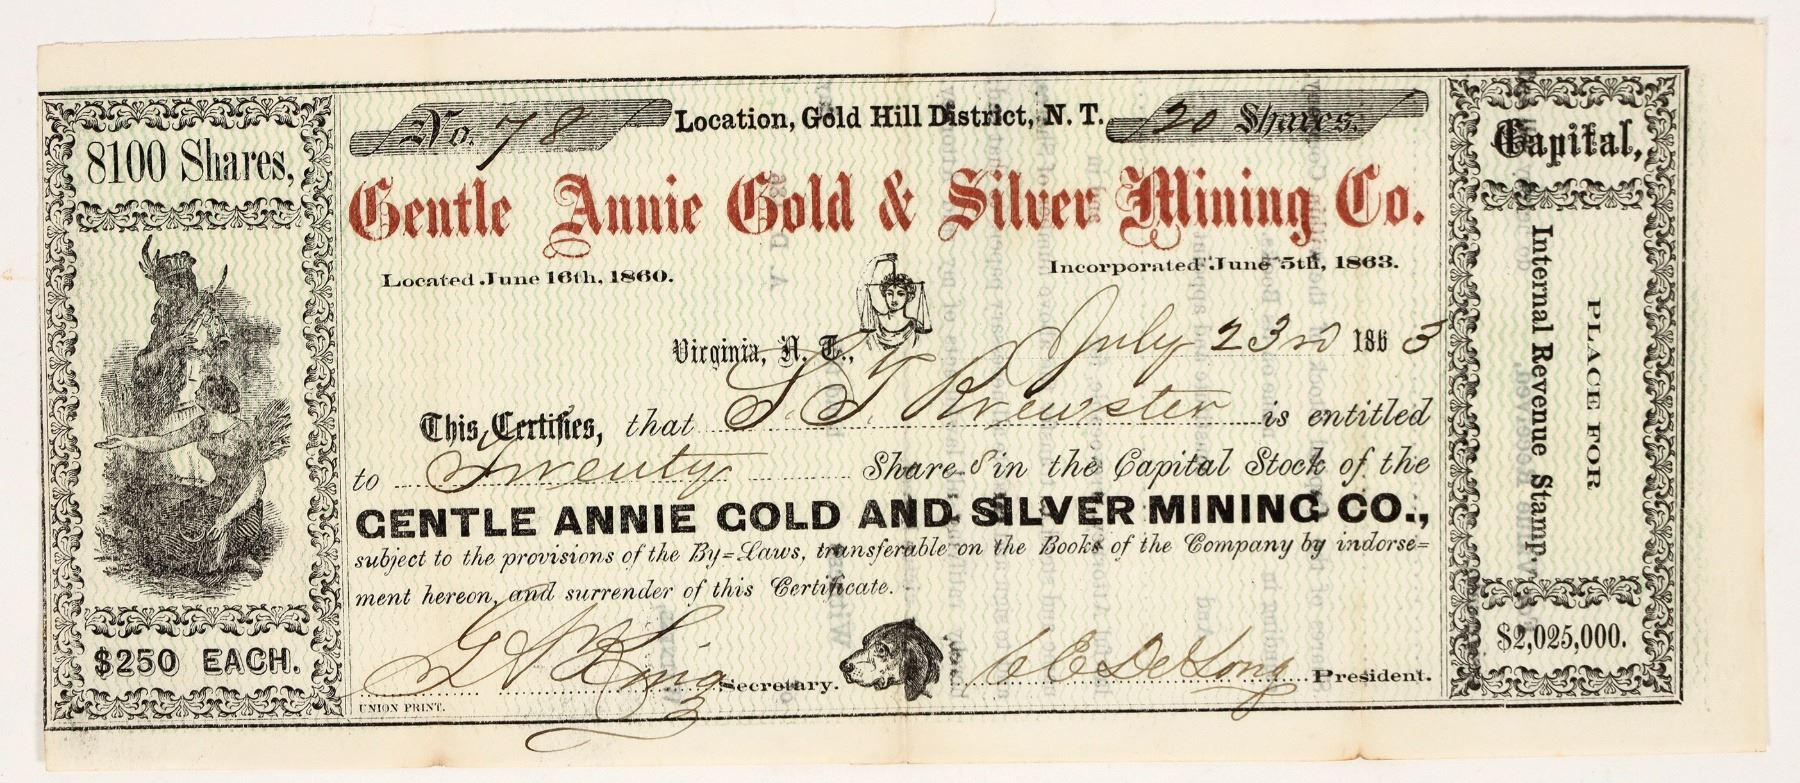 8100 Shares,
$250 EACH.
No. 78
Location, Gold Hill District, N. T.
20 Shares.
Gentle Annie Gold & Silver Mining Co.
Located June 16th, 1860.
Incorporated June 5th, 1863.
Virginia, N. T., July 23rd 1863
This Certifies, that S. T. Brewster is entitled
to Twenty Shares in the Capital Stock of the
GENTLE ANNIE GOLD AND SILVER MINING CO.,
subject to the provisions of the By=Laws, transferable on the Books of the Company by indorse=
ment hereon, and surrender of this Certificate.
King Secretary.
C E De Long President.
UNION PRINT.
Capital,
PLACE FOR
Internal Revenue Stamp.
$2,025,000.